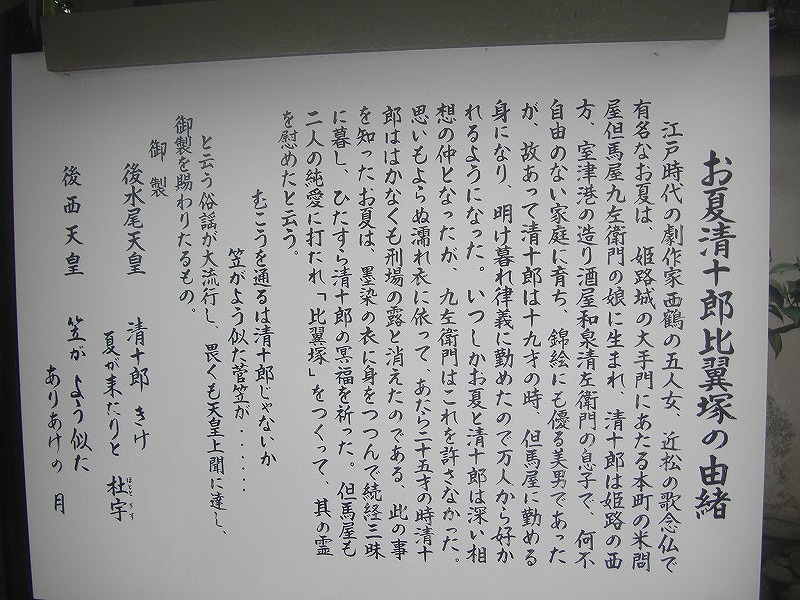 お夏清十郎比翼塚の由緒
江戸時代の劇作家西鶴の五人女、近松の歌念仏で
有名なお夏は、姫路城の大手門にあたる本町の米問
屋但馬屋九左衛門の娘に生まれ、清十郎は姫路の西
方、室津港の造り酒屋和泉清左衛門の息子で、何不
自由のない家庭に育ち、錦絵にも優る美男であった
が、故あって清十郎は十九才の時、但馬屋に勤める
身になり、明け暮れ律義に勤めたので万人から好か
れるようになった。いつしかお夏と清十郎は深い相
想の仲となったが、九左衛門はこれを許さなかった。
思いもよらぬ濡れ衣に依って、あたら二十五才の時清十
郎ははかなくも刑場の露と消えたのである、此の事
を知ったお夏は、墨染の衣に身をつつんで続経三昧
に暮し、ひたすら清十郎の冥福を祈った。但馬屋も
二人の純愛に打たれ「比翼塚」をつくって、其の霊
を慰めたと云う。
むこうを通るは清十郎じゃないか
笠がよう似た菅笠が・・・・・・
と云う俗謡が大流行し、畏くも天皇上聞に達し、
御製を賜わりたるもの。
御製
後水尾天皇 清十郎 きけ
夏が来たりと 杜宇
ほととぎす
後西天皇 笠が よう似た
ありあけの 月